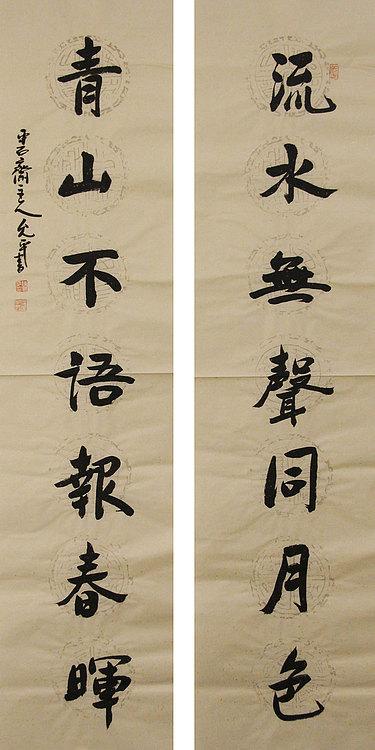 流水無聲同月色
青山不語報春暉
平西齋主人允平書